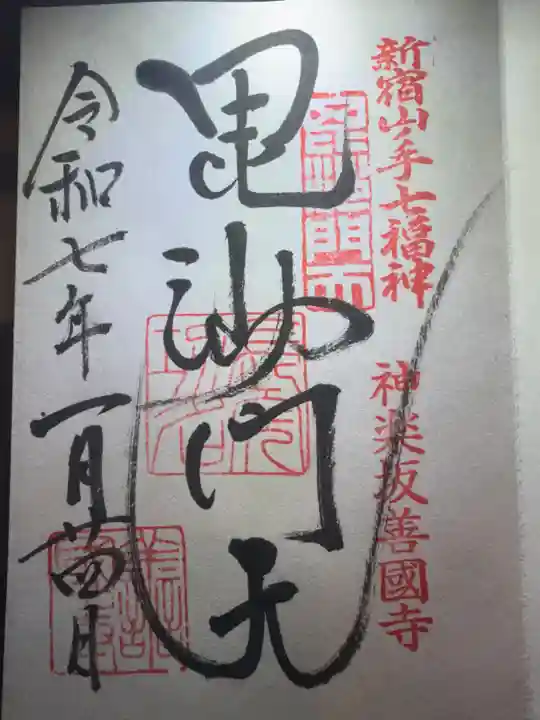 新宿山ノ手七福神　神楽坂善國寺
毘沙門天
令和七年一月廿四日